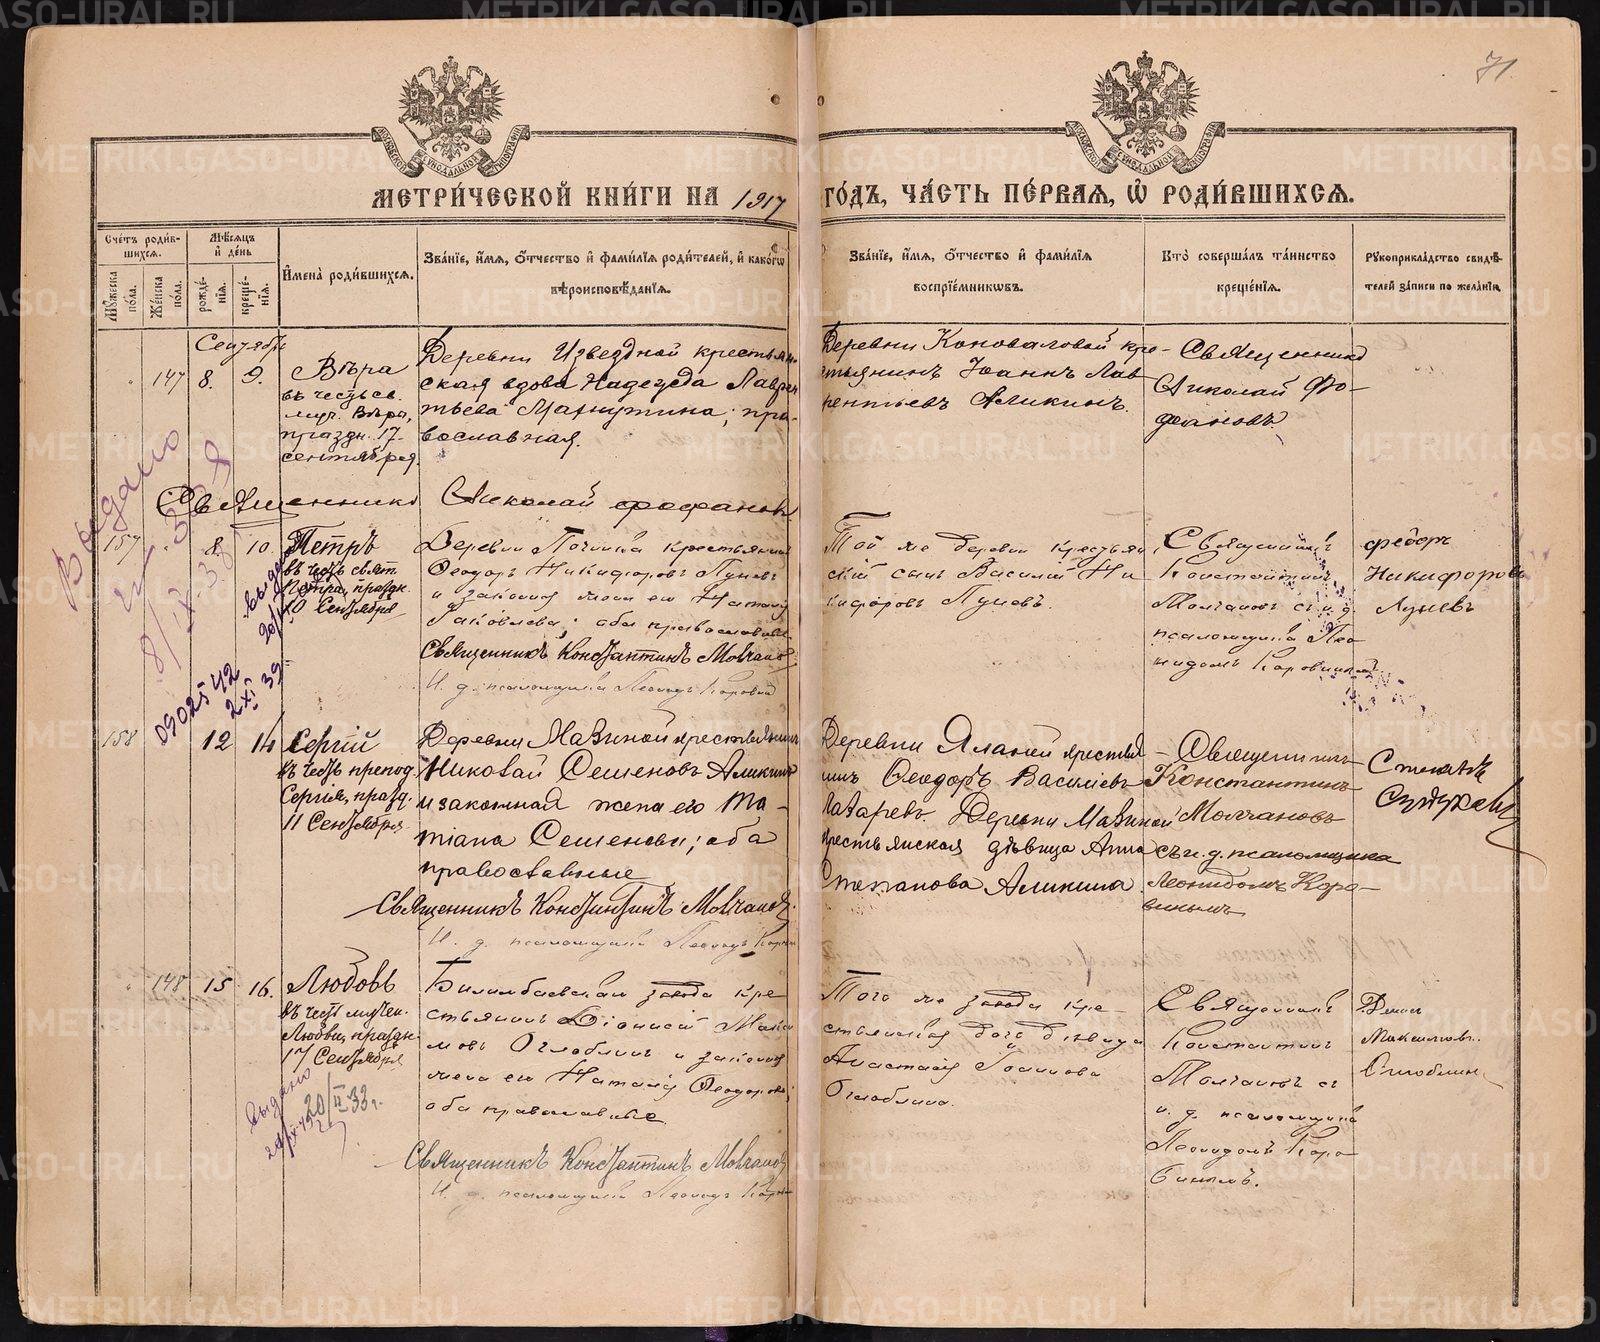 71
МЕТРИ́ЧЕСКОЙ КНИ́ГИ НА 1917 ГО́ДЪ, ЧА́СТЬ ПЕ́РВАЯ, Ѡ РОДИ́ВШИХСЯ.
Сче́тъ роди́в-
шихся.
Му́жеска по́ла.
Же́нска по́ла.
Мѣ́сяцъ и де́нь
рожде́нія.
креще́нія.
Имена̀ роди́вшихся.
Зва́ніе, и́мя, о́тчество и фами́лія роди́телей, и како́гѡ
вѣроисповѣ́данія.
Зва́ніе, и́мя, о́тчество и фами́лія
воспріе́мниковъ.
Кто̀ соверша́лъ та́инство
креще́нія.
Рукоприкла́дство свидѣ́-
телей за́писи по жела́нію.
Сентябрь
147 8. 9.
Вѣра
въ честь св.
муч. Вѣры,
праздн. 17-
сентября.
Деревни Извездной крестьян-
ская вдова Надежда Лаврен
тьева Махнутина, пра-
вославная.
Деревни Коноваловой кре-
стьянинъ Іоаннъ Лав
рентьевъ Аликинъ.
Священникъ
Николай Фо-
фановъ
Священникъ Николай Фофановъ.
157 8 10
Петръ
въ честь свят.
Петра, праздн.
10 Сентября
Деревни Починка крестьянинъ
Ѳеодоръ Никифоровъ Лунев
и законная жена его Наталія
Іаковлева; оба православные
Священникъ Константинъ Молчановъ
И. д. псаломщика Леонидъ Коровинъ
Той же деревни крестьян
скій сынъ Василій Ни
кифоровъ Луневъ.
Священникъ
Константинъ
Молчановъ съ и. д.
псаломщика Лео
нидомъ Коровинымъ
Федоръ
Никифоровъ
Луневъ
Выдано
8/IX-38
0902542
2 XI 39
158 12 14
Сергій
въ честь препод.
Сергія, празд.
11 Сентября
Деревни Мазиной крестьянинъ
Николай Семеновъ Аликинъ
и законная жена его Та-
тіана Семенова; оба
православные
Священникъ Константинъ Молчановъ.
И. д. псаломщика Леонидъ Коровин
Деревни Яланей крестья
нинъ Ѳеодоръ Василіевъ
Лазаревъ. Деревни Мазиной
крестьянская дѣвица Анна
Степанова Аликина
Священникъ
Константинъ
Молчановъ
съ и. д. псаломщика
Леонидомъ Коро-
винымъ
148 15 16.
Любовь
въ честь мучен.
Любви, праздн.
17 Сентября
Выдано
20/II 33 г.
Билимбаевскаго завода кре
стьянинъ Діонисій Макси
мовъ Оглоблинъ и законная
жена его Наталія Ѳеодорова;
оба православные
Священникъ Константинъ Молчановъ
И. д. псаломщика Леонидъ Коровин
Того же завода кре-
стьянская дочь дѣвица
Анастасія Іоаннова
Оглоблина.
Священникъ
Константинъ
Молчановъ съ
и. д. псаломщика
Леонидомъ Коро
винымъ.
Денис
Максимовъ
Оглоблинъ
METRIKI.GASO-URAL.RU